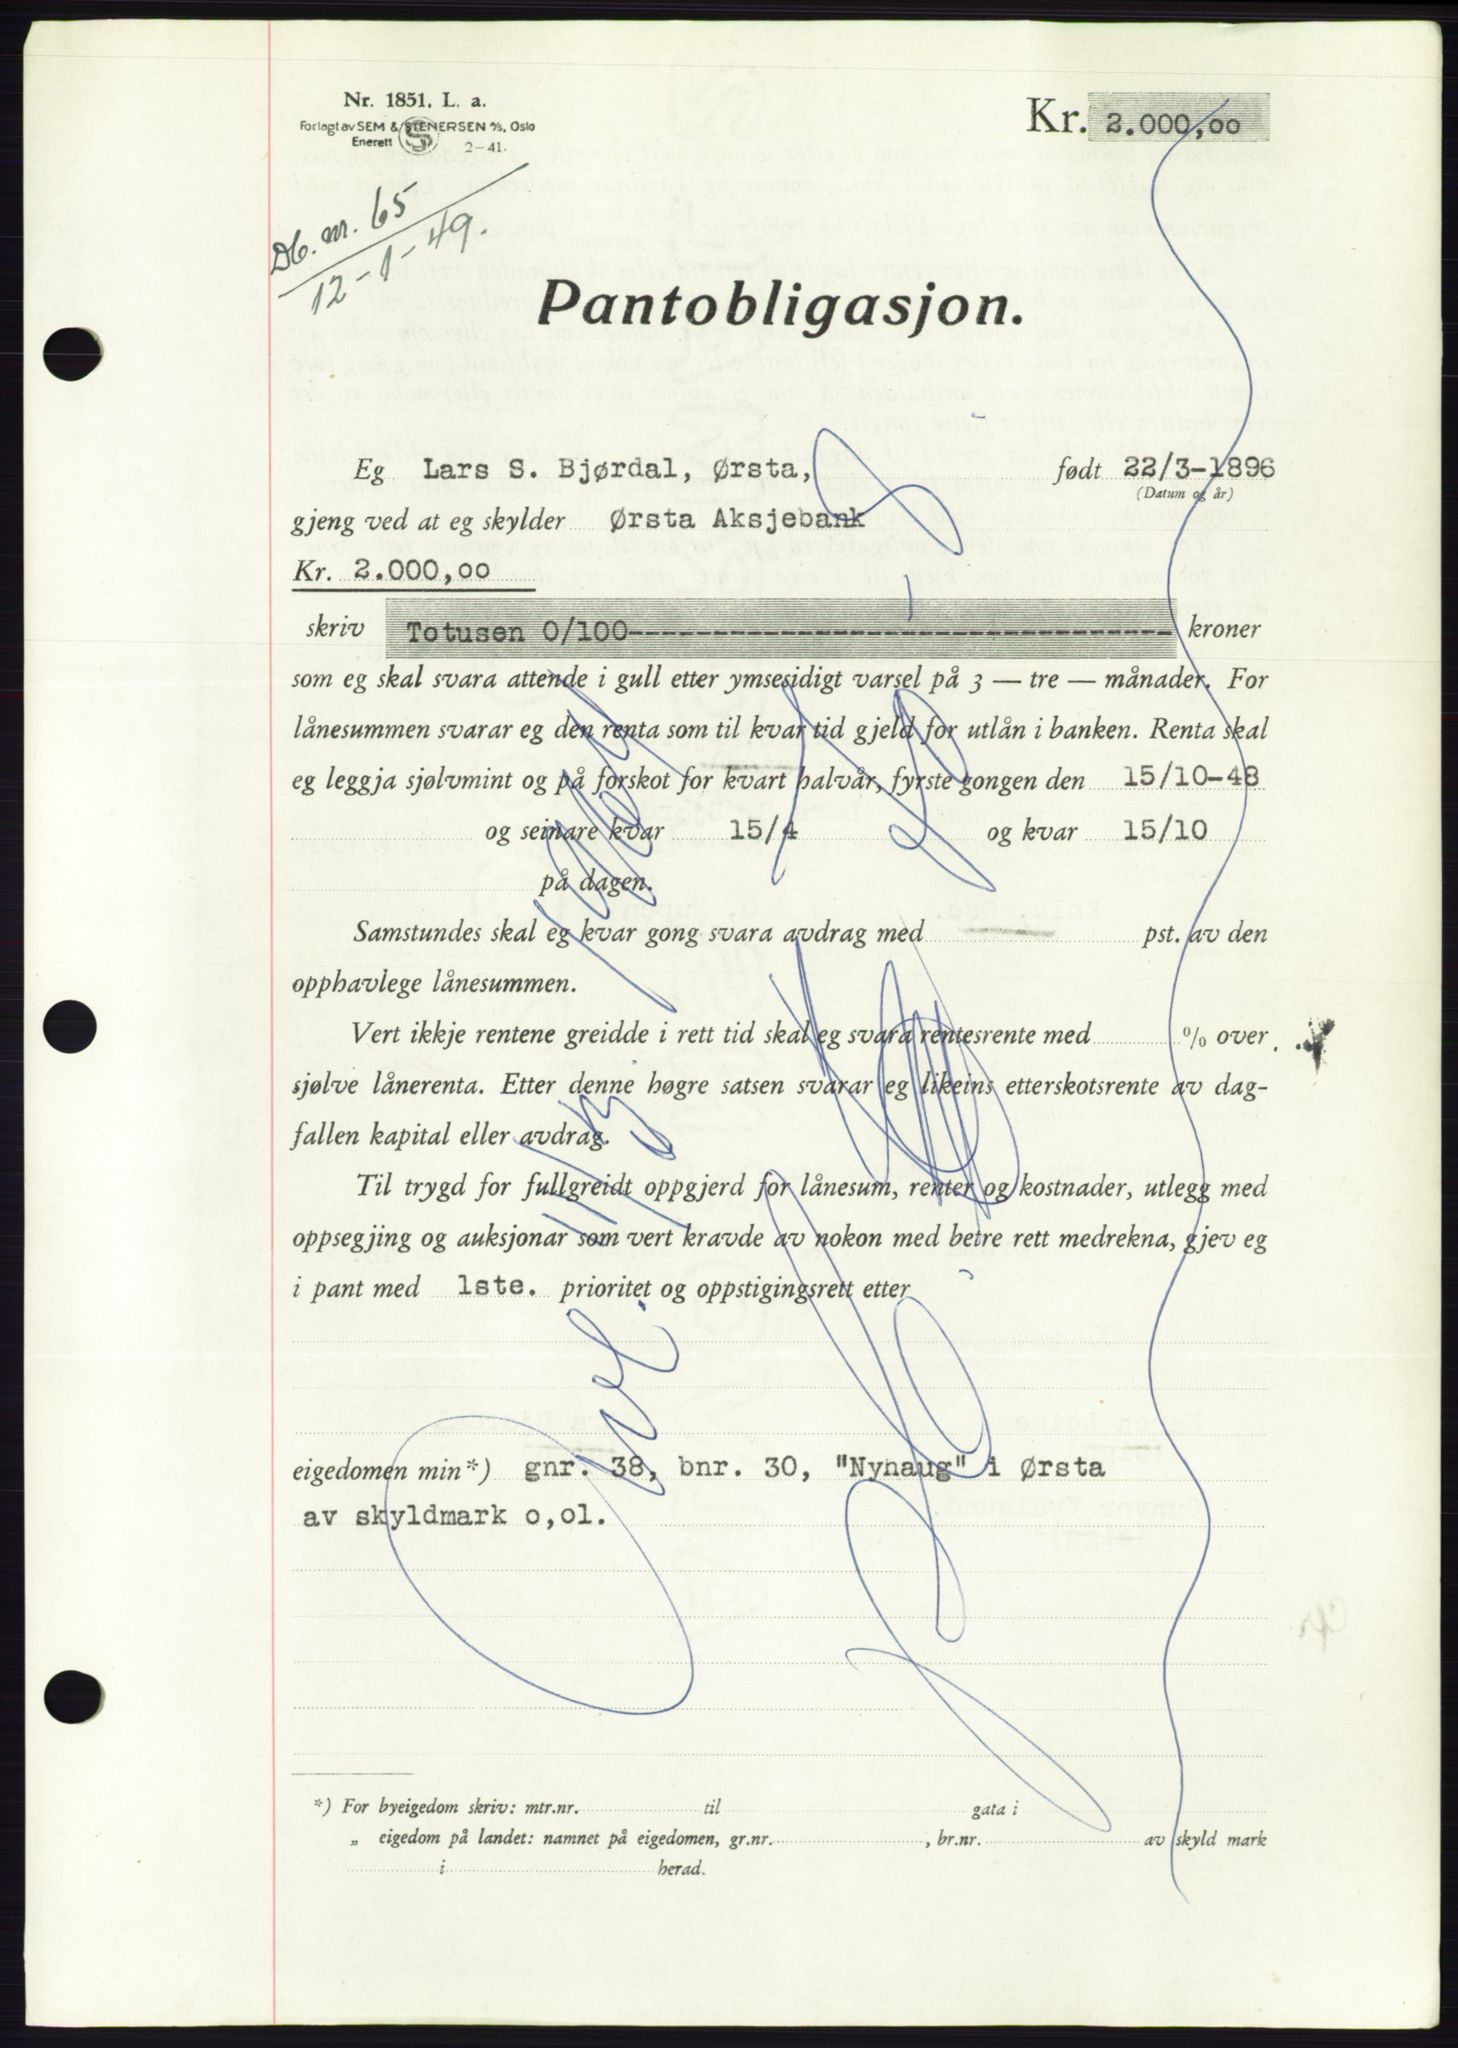 Nr. 1851. L. a.
Forlagt av SEM & STENERSEN A/S, Oslo
Enerett
S
2-41.
Kr. 2.000,00
Db. nr. 65
12-1-49.
Pantobligasjon.
Eg Lars S. Bjørdal, Ørsta, født 22/3-1896
(Datum og år)
gjeng ved at eg skylder Ørsta Aksjebank
Kr. 2.000,00
skriv Totusen 0/100------------------------------------ kroner
som eg skal svara attende i gull etter ymsesidigt varsel på 3 — tre — månader. For
lånesummen svarar eg den renta som til kvar tid gjeld for utlån i banken. Renta skal
eg leggja sjølvmint og på forskot for kvart halvår, fyrste gongen den 15/10-48
og seinare kvar 15/4 og kvar 15/10
på dagen.
Samstundes skal eg kvar gong svara avdrag med pst. av den
opphavlege lånesummen.
Vert ikkje rentene greidde i rett tid skal eg svara rentesrente med % over
sjølve lånerenta. Etter denne høgre satsen svarar eg likeins etterskotsrente av dag-
fallen kapital eller avdrag.
Til trygd for fullgreidt oppgjerd for lånesum, renter og kostnader, utlegg med
oppsegjing og auksjonar som vert kravde av nokon med betre rett medrekna, gjev eg
i pant med 1ste. prioritet og oppstigingsrett etter
eigedomen min*) gnr. 38, bnr. 30, "Nyhaug" i Ørsta
av skyldmark o,ol.
*) For byeigedom skriv: mtr.nr. til gata i
„ eigedom på landet: namnet på eigedomen, gr.nr. , br.nr. av skyld mark
i herad.